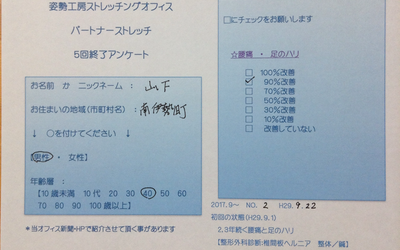 姿勢工房ストレッチングオフィス
パートナーストレッチ
5回終了アンケート
お名前 か ニックネーム: 山下
お住まいの地域(市町村名): 南伊勢町
↓ ○を付けてください ↓
【男性・ 女性】
年齢層:
【10歳未満 10代 20 30 40 50 60
70 80 90 100歳以上】
*当オフィス新聞・HPで紹介させて頂く事があります
□にチェックをお願いします
☆腰痛 ・ 足のハリ
□ 100%改善
☑ 90%改善
□ 70%改善
□ 50%改善
□ 30%改善
□ 10%改善
□ 改善していない
2017.9~ NO. 2 H29. 9.22
初回の状態(H29.9.1)
2.3年続く腰痛と足のハリ
【整形外科診断:椎間板ヘルニア 整体/鍼】